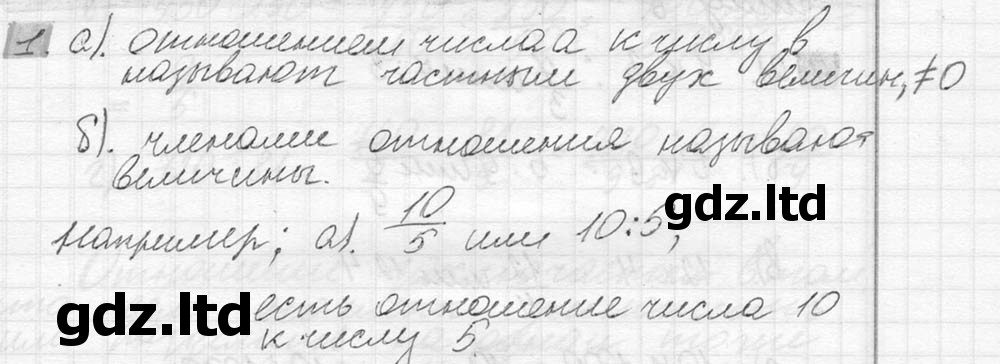 1. а). отношением числа а к числу в
называют частным двух величин, ≠0
б). членами отношения называют
величины.
gdz.ltd
например; а). 10/5 или 10:5,
gdz.ltd
есть отношение числа 10
к числу 5.